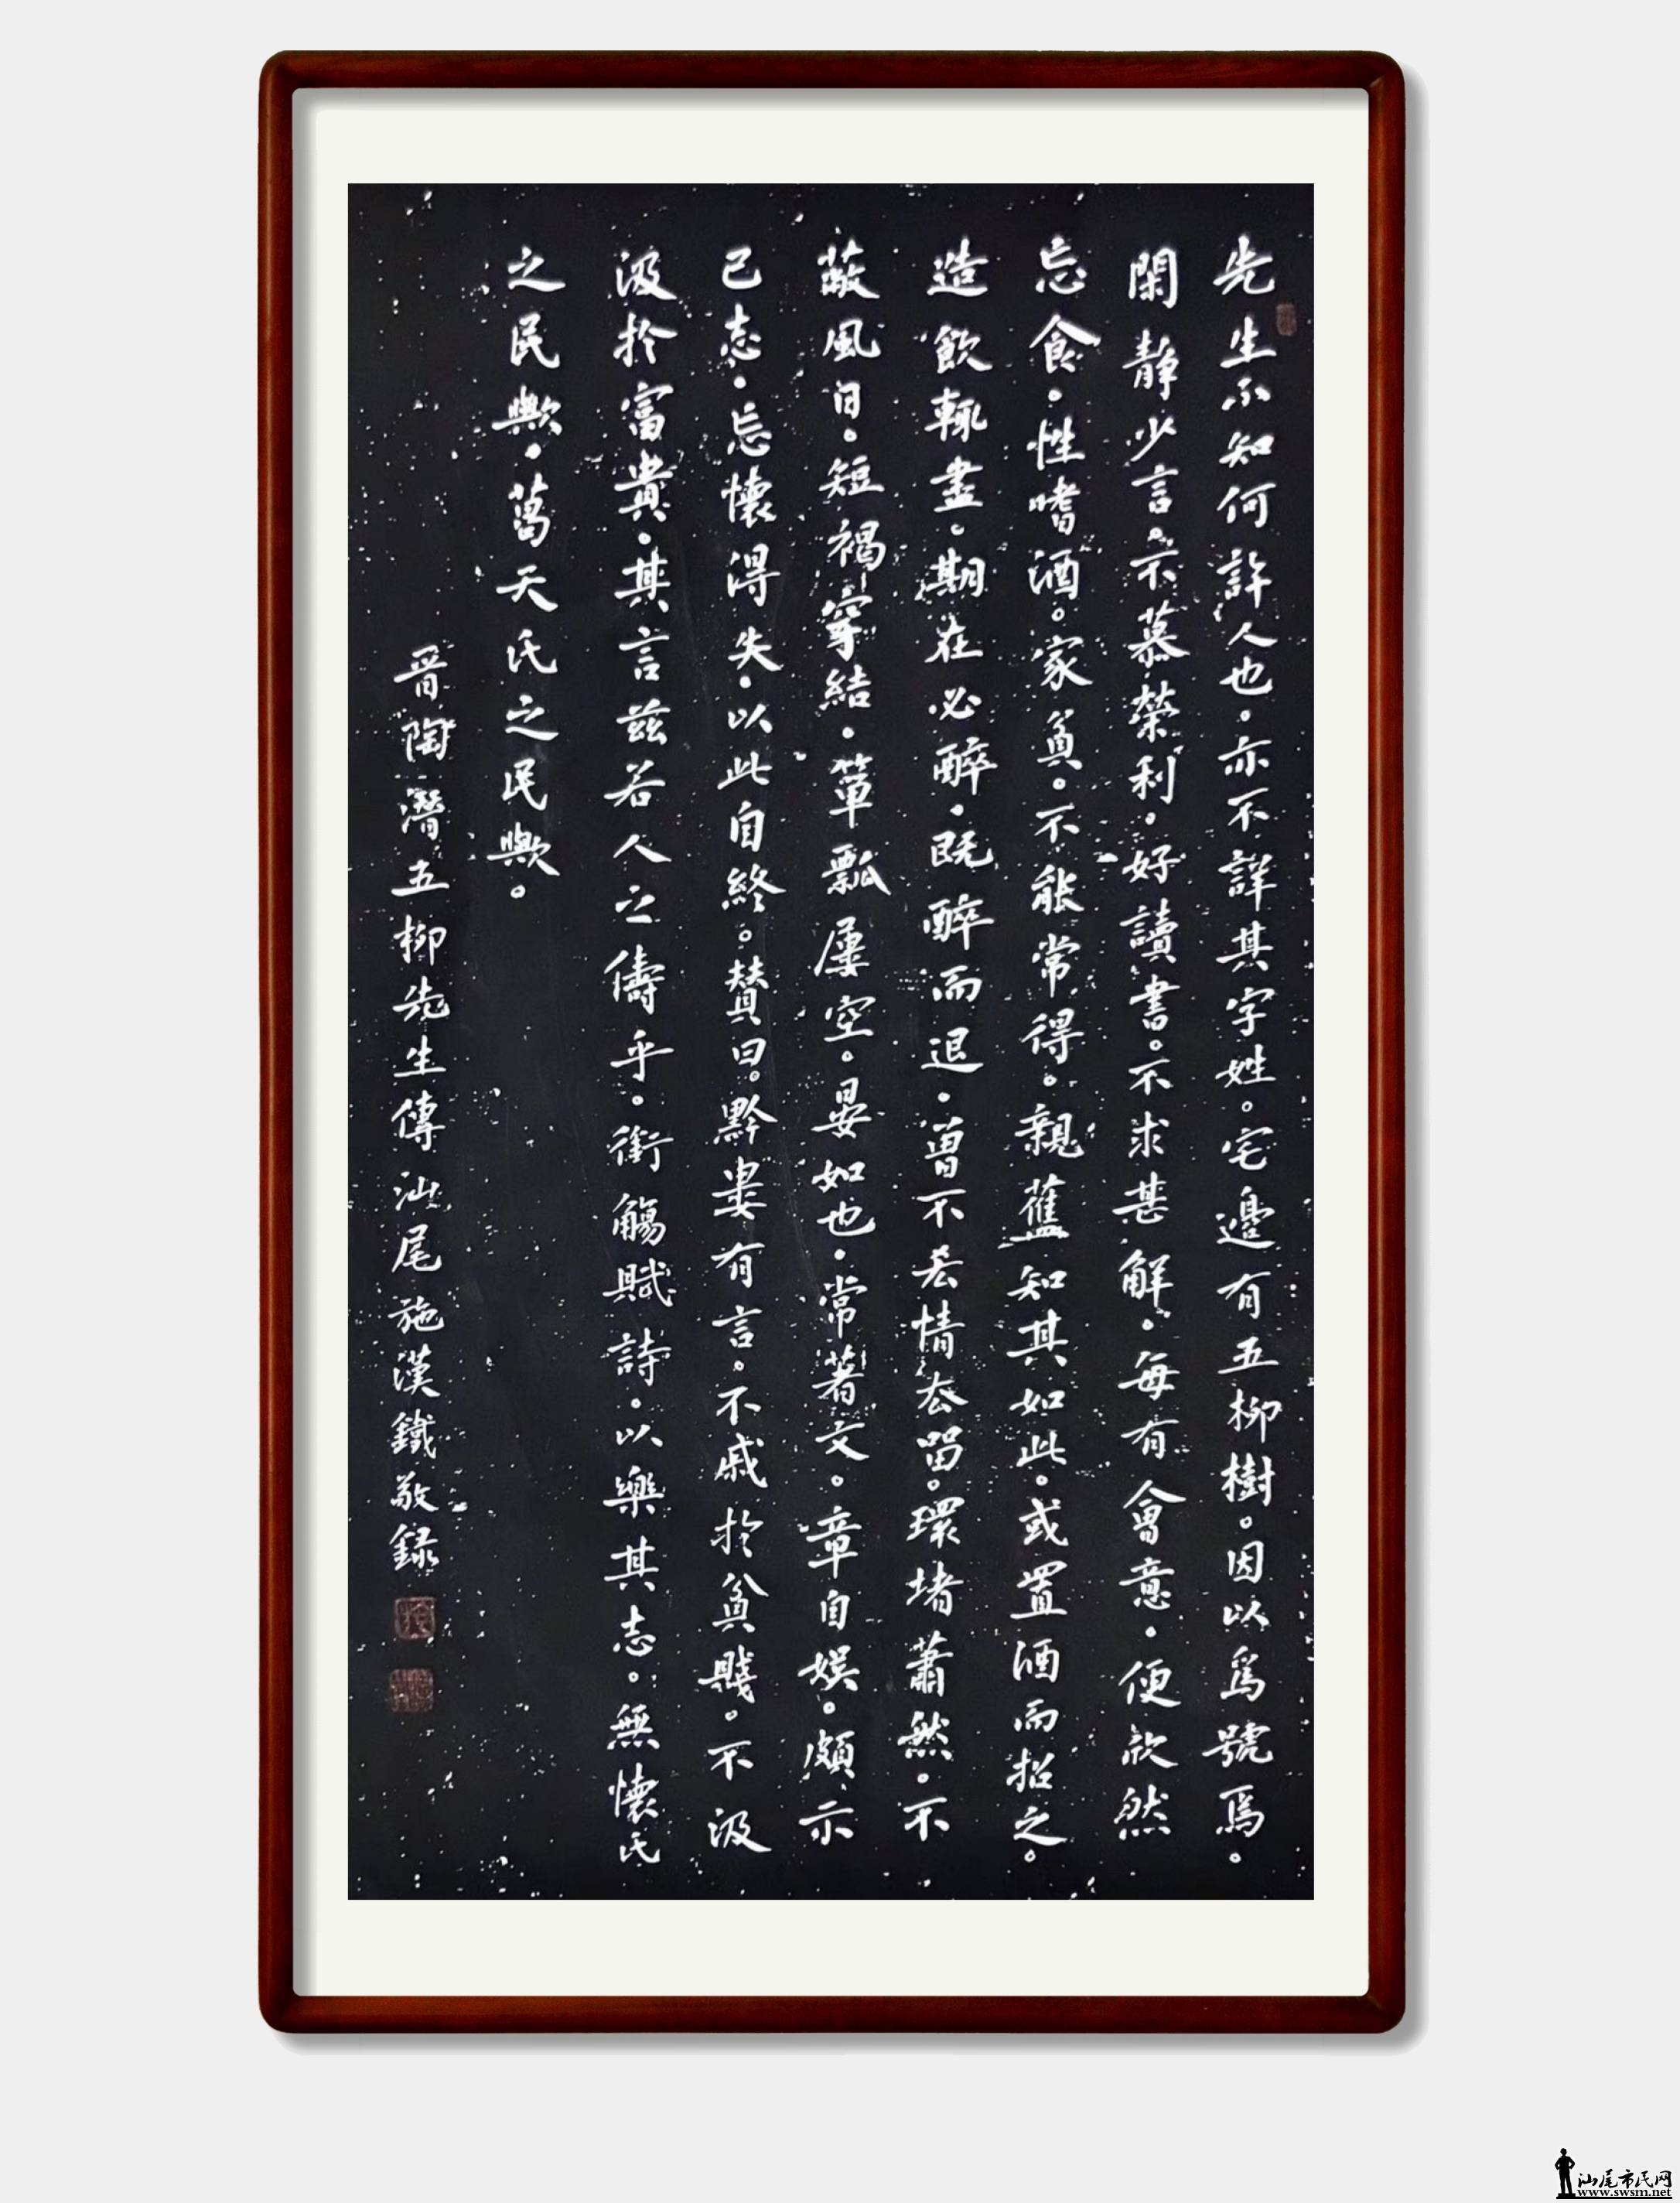 先生不知何許人也。亦不詳其字姓。宅邊有五柳樹。因以爲號焉。
閑静少言。不慕榮利。好讀書。不求甚解。每有會意。便欣然
忘食。性嗜酒。家貧。不能常得。親舊知其如此。或置酒而招之。
造飲輒盡。期在必醉。既醉而退。曾不吝情去留。環堵蕭然。不
蔽風日。短褐穿結。簞瓢屢空。晏如也。常著文。章自娱。頗示
己志。忘懷得失。以此自終。賛曰。黔婁有言。不戚於貧賤。不汲
汲於富貴。其言兹若人之儔乎。銜觴賦詩。以樂其志。無懷氏
之民歟。葛天氏之民歟。
晋陶潛五柳先生傳汕尾施漢鐵敬録
汕尾市民网
www.swsm.net